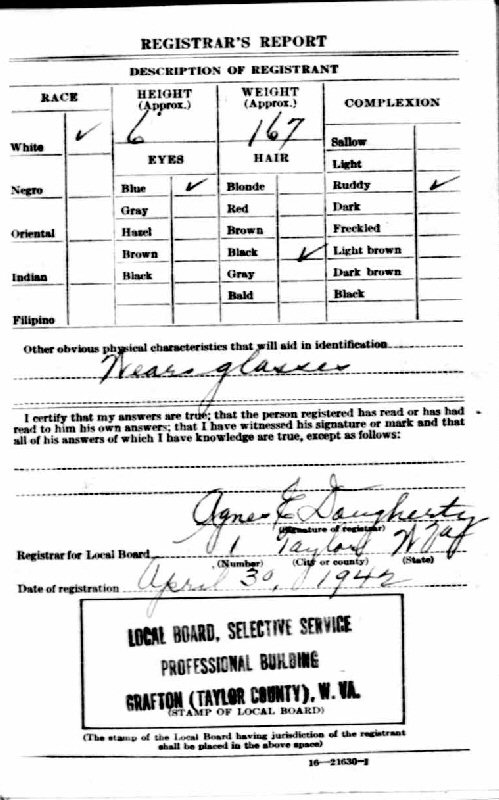 REGISTRAR'S REPORT
DESCRIPTION OF REGISTRANT
RACE
HEIGHT (Approx.)
WEIGHT (Approx.)
COMPLEXION
6
167
White ✓
Sallow
EYES
HAIR
Light
Negro
Blue ✓
Blonde
Ruddy ✓
Gray
Red
Dark
Oriental
Hazel
Brown
Freckled
Brown
Black ✓
Light brown
Indian
Black
Gray
Dark brown
Bald
Black
Filipino
Other obvious physical characteristics that will aid in identification
Wears glasses
I certify that my answers are true; that the person registered has read or has had
read to him his own answers; that I have witnessed his signature or mark and that
all of his answers of which I have knowledge are true, except as follows:
Agnes E Dougherty
(Signature of registrar)
Registrar for Local Board 1 Taylor W Va
(Number) (City or county) (State)
Date of registration April 30, 1942
LOCAL BOARD, SELECTIVE SERVICE
PROFESSIONAL BUILDING
GRAFTON (TAYLOR COUNTY), W. VA.
(STAMP OF LOCAL BOARD)
(The stamp of the Local Board having jurisdiction of the registrant
shall be placed in the above space)
16—21630-1